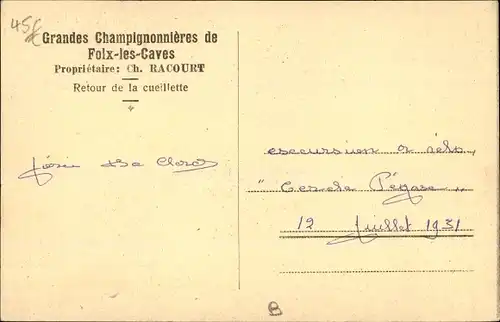 45€
Grandes Champignonnières de
Folx-les-Caves
Propriétaire: Ch. RACOURT
Retour de la cueillette
escursion a vélo
" Cercle Pégase "
12 Juillet 1931